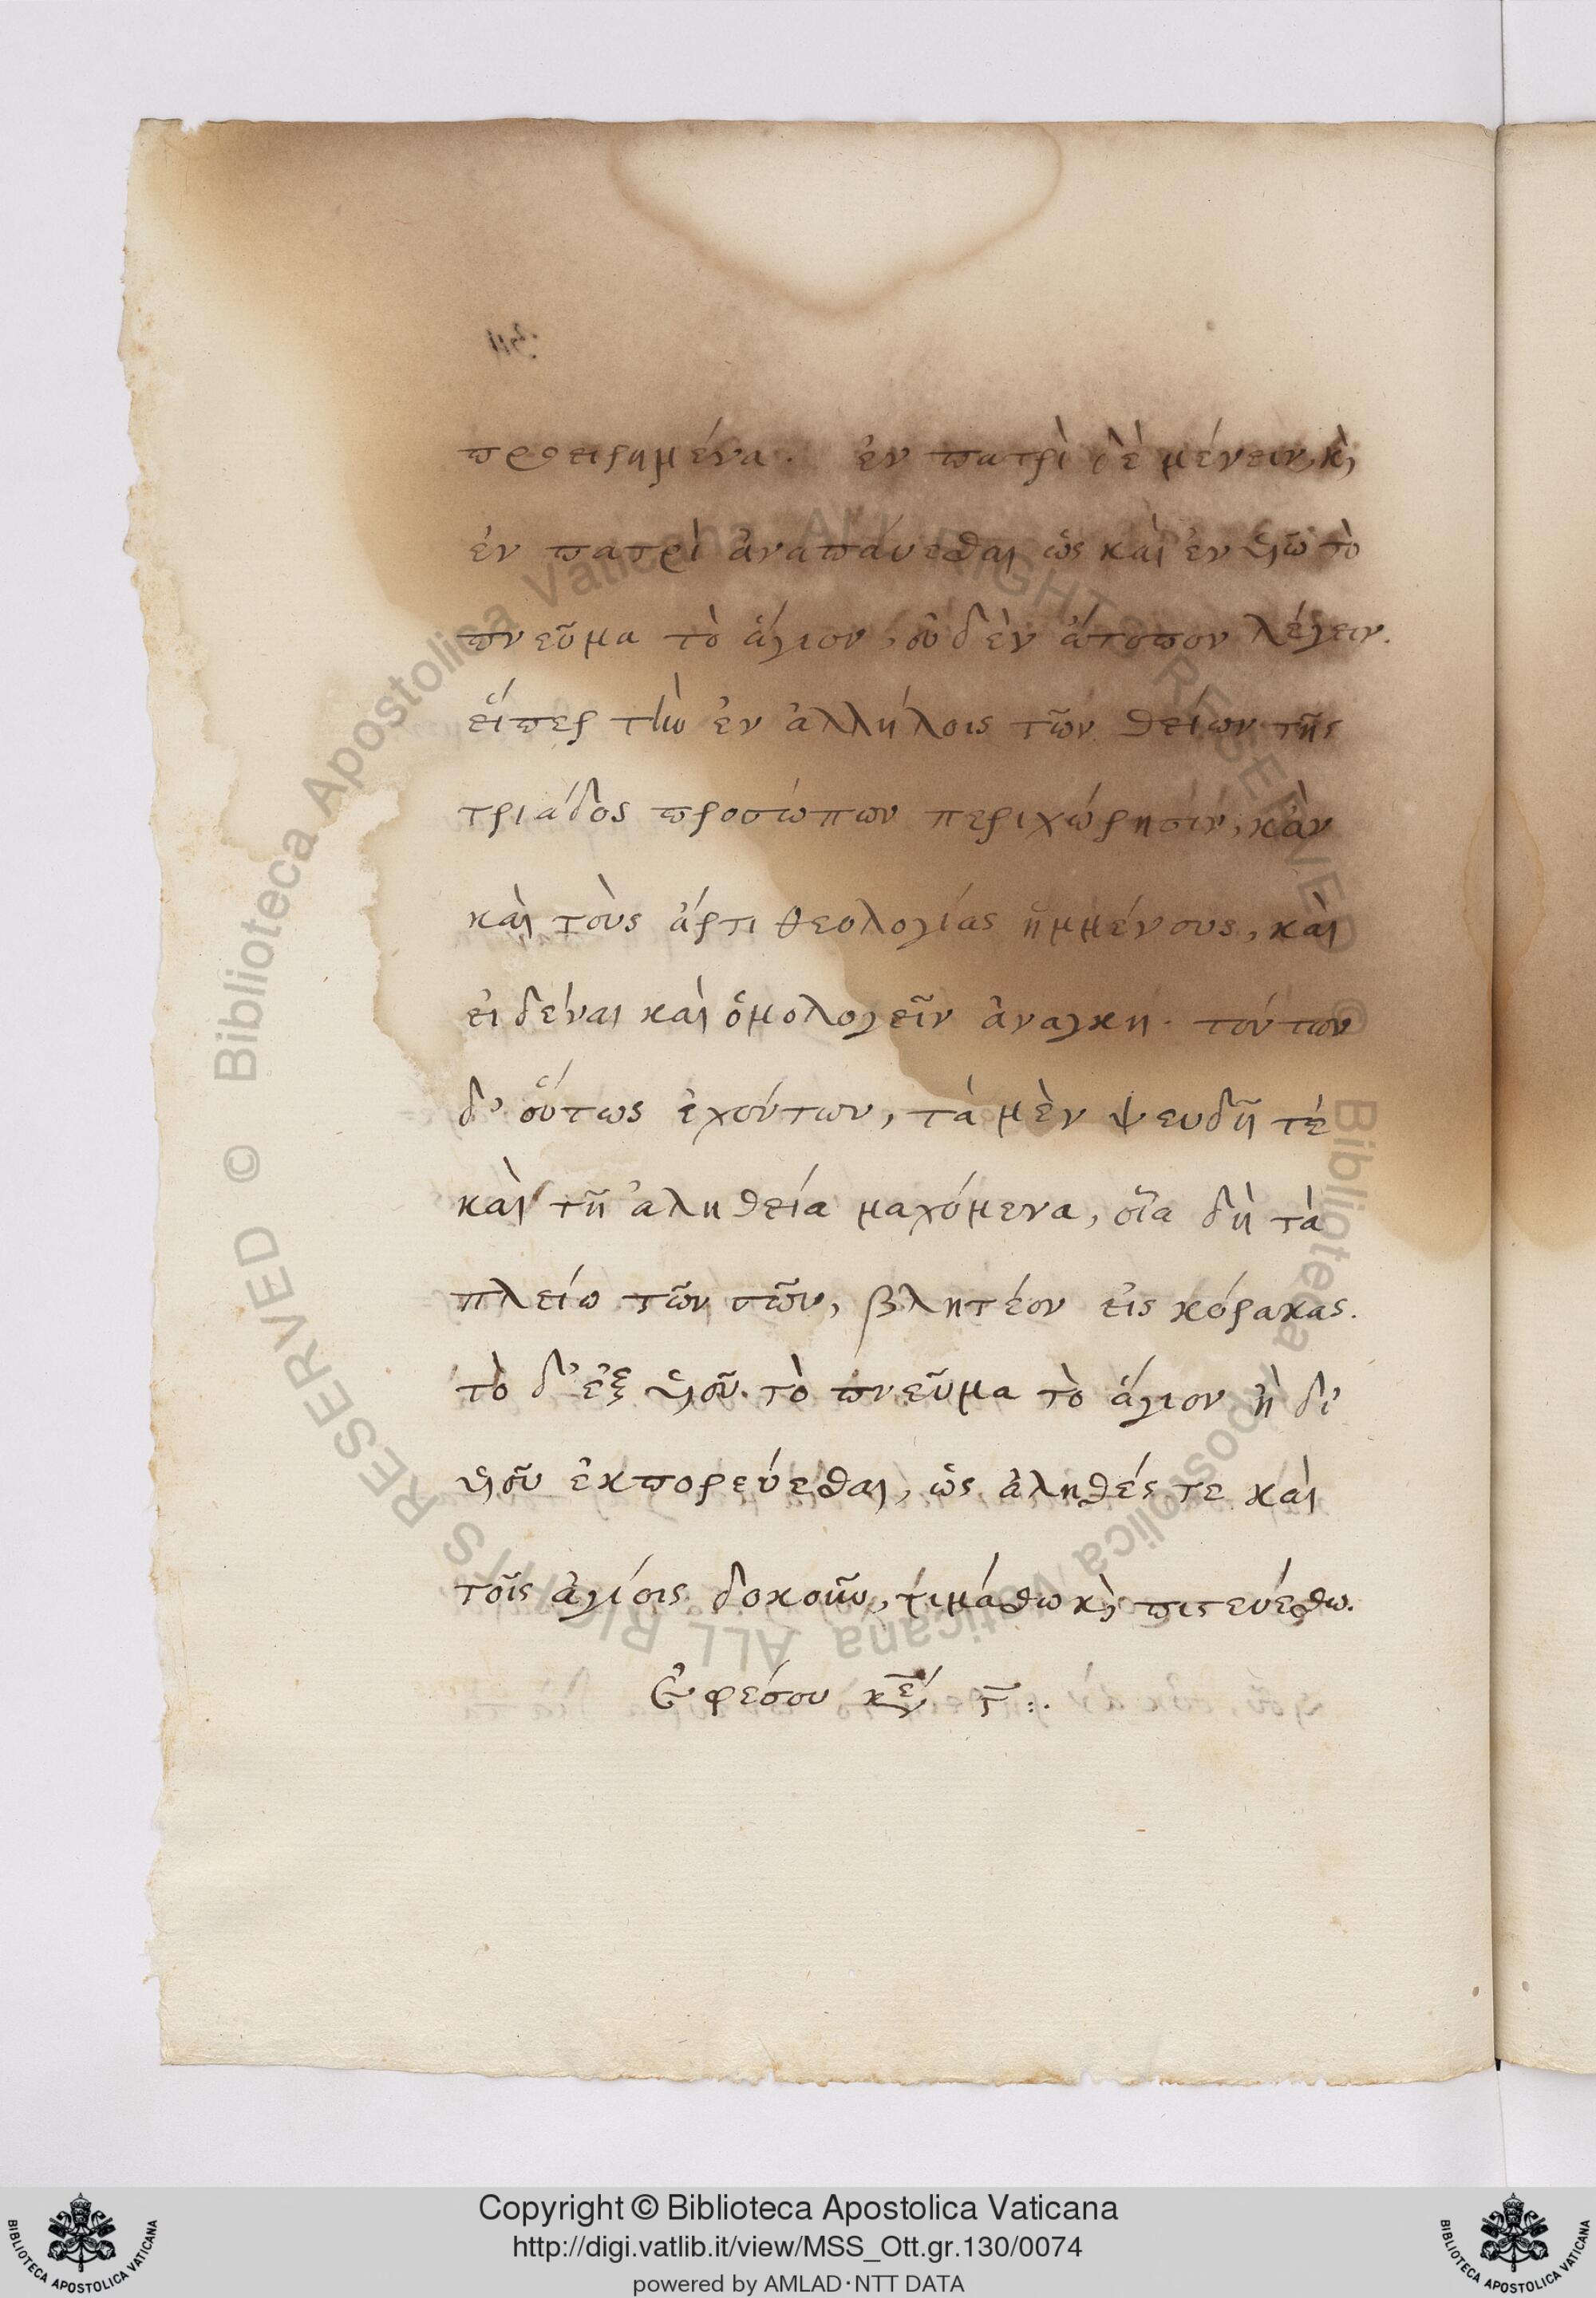 προειρημένα. ἐν πατρὶ δὲ μένειν, κ̀
ἐν πατρὶ ἀναπαύεσθαι ὡς καὶ ἐν υἱῶ τὸ
πνεῦμα τὸ ἅγιον, οὐδὲν ἄτοπον λέγειν.
εἴπερ τὴν ἐν ἀλλήλοις τῶν θείων τῆς
τριάδος προσώπων περιχώρησιν, κἂν
καὶ τοὺς ἄρτι θεολογίας ἡμμένους, καὶ
εἰδέναι καὶ ὁμολογεῖν ἀναγκη. τούτων
δ' οὕτως ἐχόντων, τὰ μὲν ψευδῆ τὲ
καὶ τῆ ἀληθεία μαχόμενα, οἷα δὴ τὰ
πλείω τῶν σῶν, βλητέον εἰς κόρακας.
τὸ δ' ἐξ υἱοῦ τὸ πνεῦμα τὸ ἅγιον ἢ δι'
υἱοῦ ἐκπορεύεσθαι, ὡς ἀληθές τε καὶ
τοῖς ἁγίοις δοκοῦν, τιμάσθω κ̀ πιστευέσθω.
Ἐφέσου
Copyright © Biblioteca Apostolica Vaticana
http://digi.vatlib.it/view/MSS_Ott.gr.130/0074
powered by AMLAD·NTT DATA
BIBLIOTECA APOSTOLICA VATICANA
BIBLIOTECA APOSTOLICA VATICANA
© Biblioteca Apostolica Vaticana ALL RIGHTS RESERVED
© Biblioteca Apostolica Vaticana ALL RIGHTS RESERVED